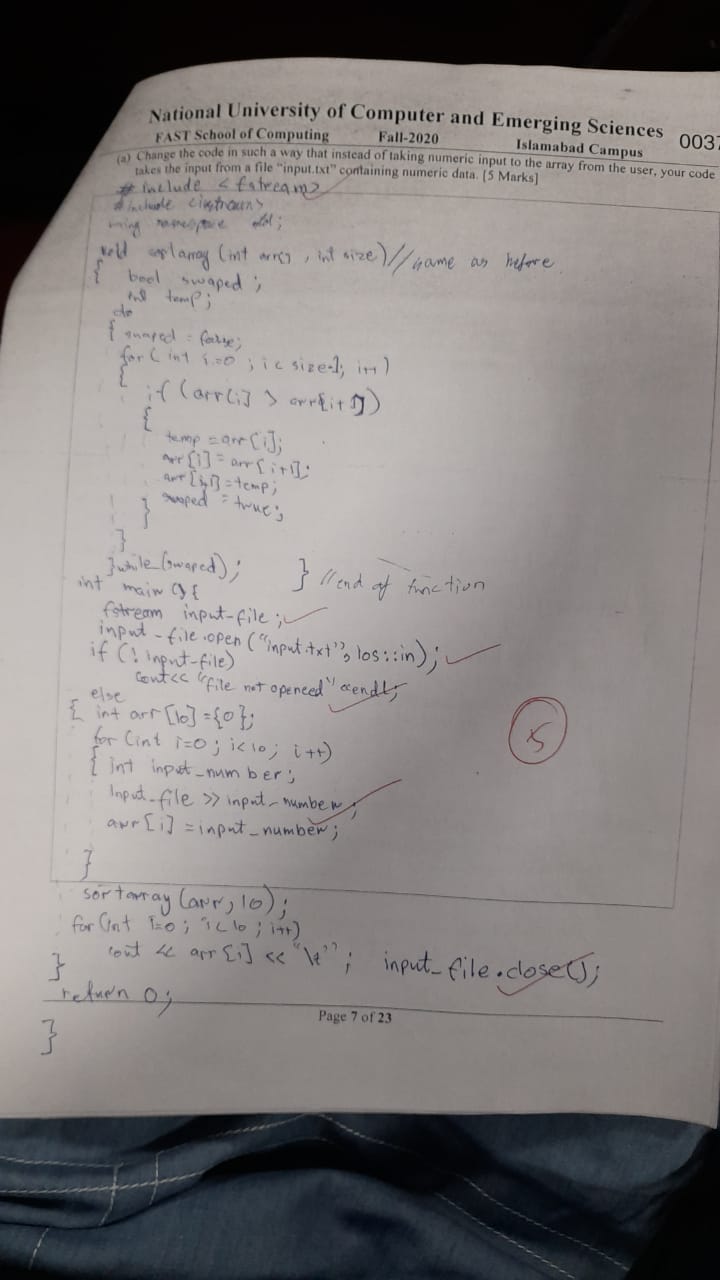 National University of Computer and Emerging Sciences
FAST School of Computing Fall-2020 Islamabad Campus
0037
(a) Change the code in such a way that instead of taking numeric input to the array from the user, your code
takes the input from a file "input.txt" containing numeric data. [5 Marks]
# include <fstream>
# include <iostream>
using namespace std;
void (int arr[], int size) // same as before
{ bool swaped;
int temp;
do
{ swaped = false;
for (int i=0; i< size-1; i++)
{
if (arr[i] > arr[i+1])
{
temp = arr[i];
arr[i] = arr[i+1];
arr[i+1] = temp;
swaped = true;
}
}
}while (swaped); } // end of function
int main () {
fstream input-file;
input-file.open ("input.txt", ios::in);
if (! input-file)
cout<< "file not openeed" <<endl;
else
{ int arr [10] = {0};
for (int i=0; i<10; i++)
{ int input_number;
Input_file >> input_number;
arr[i] = input_number;
}
sortarray (arr, 10);
for (int i=0; i<10; i++)
cout << arr[i] << "\t"; input_file.close();
}
return 0;
}
5
Page 7 of 23